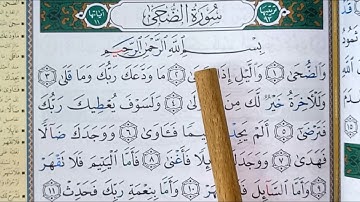 سُورَةُ الضُّحَى
بِسْمِ اللَّهِ الرَّحْمَٰنِ الرَّحِيمِ
وَالضُّحَى ١ وَالَّيْلِ إِذَا ٢ مَا وَدَّعَكَ رَبُّكَ وَمَا قَلَى ٣
وَلَلْآخِرَةُ خَيْرٌ لَّكَ مِنَ ولَى ٤ وَلَسَوْفَ يُعْطِيكَ رَبُّكَ
فَتَرْضَى ٥ أَلَمْ يَجِدْ يمًا فَـَٔاوَى ٦ وَوَجَدَكَ ضَآلًّا
فَهَدَى ٧ وَوَجَدَ ئِلًا فَأَغْنَى ٨ فَأَمَّا الْيَتِيمَ فَلَا تَقْهَرْ
٩ وَأَمَّا السَّآئِلَ فَلَ هَرْ ١٠ وَأَمَّا بِنِعْمَةِ رَبِّكَ فَحَدِّثْ ١١